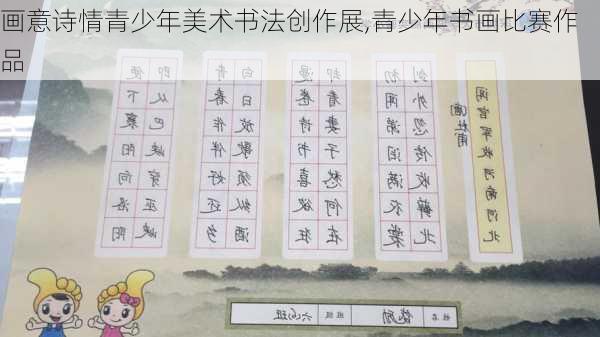 画意诗情青少年美术书法创作展,青少年书画比赛作
品
闻官军收河南河北
杜甫
剑外忽传收蓟北
初闻涕泪满衣裳
却看妻子愁何在
漫卷诗书喜欲狂
白日放歌须纵酒
青春作伴好还乡
即从巴峡穿巫峡
便下襄阳向洛阳
姓名
班级